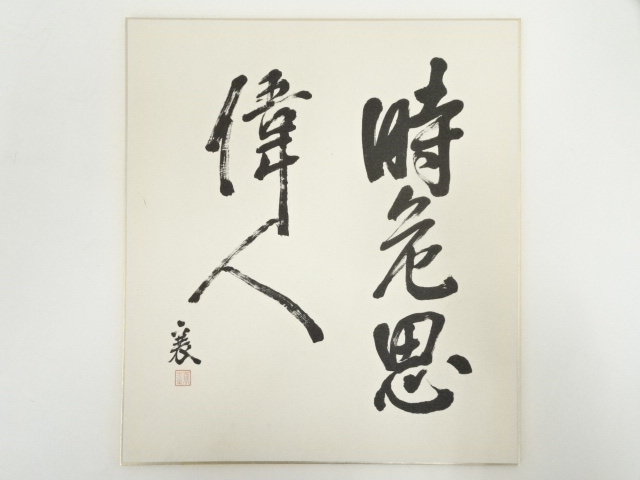 時危思
偉人
襄